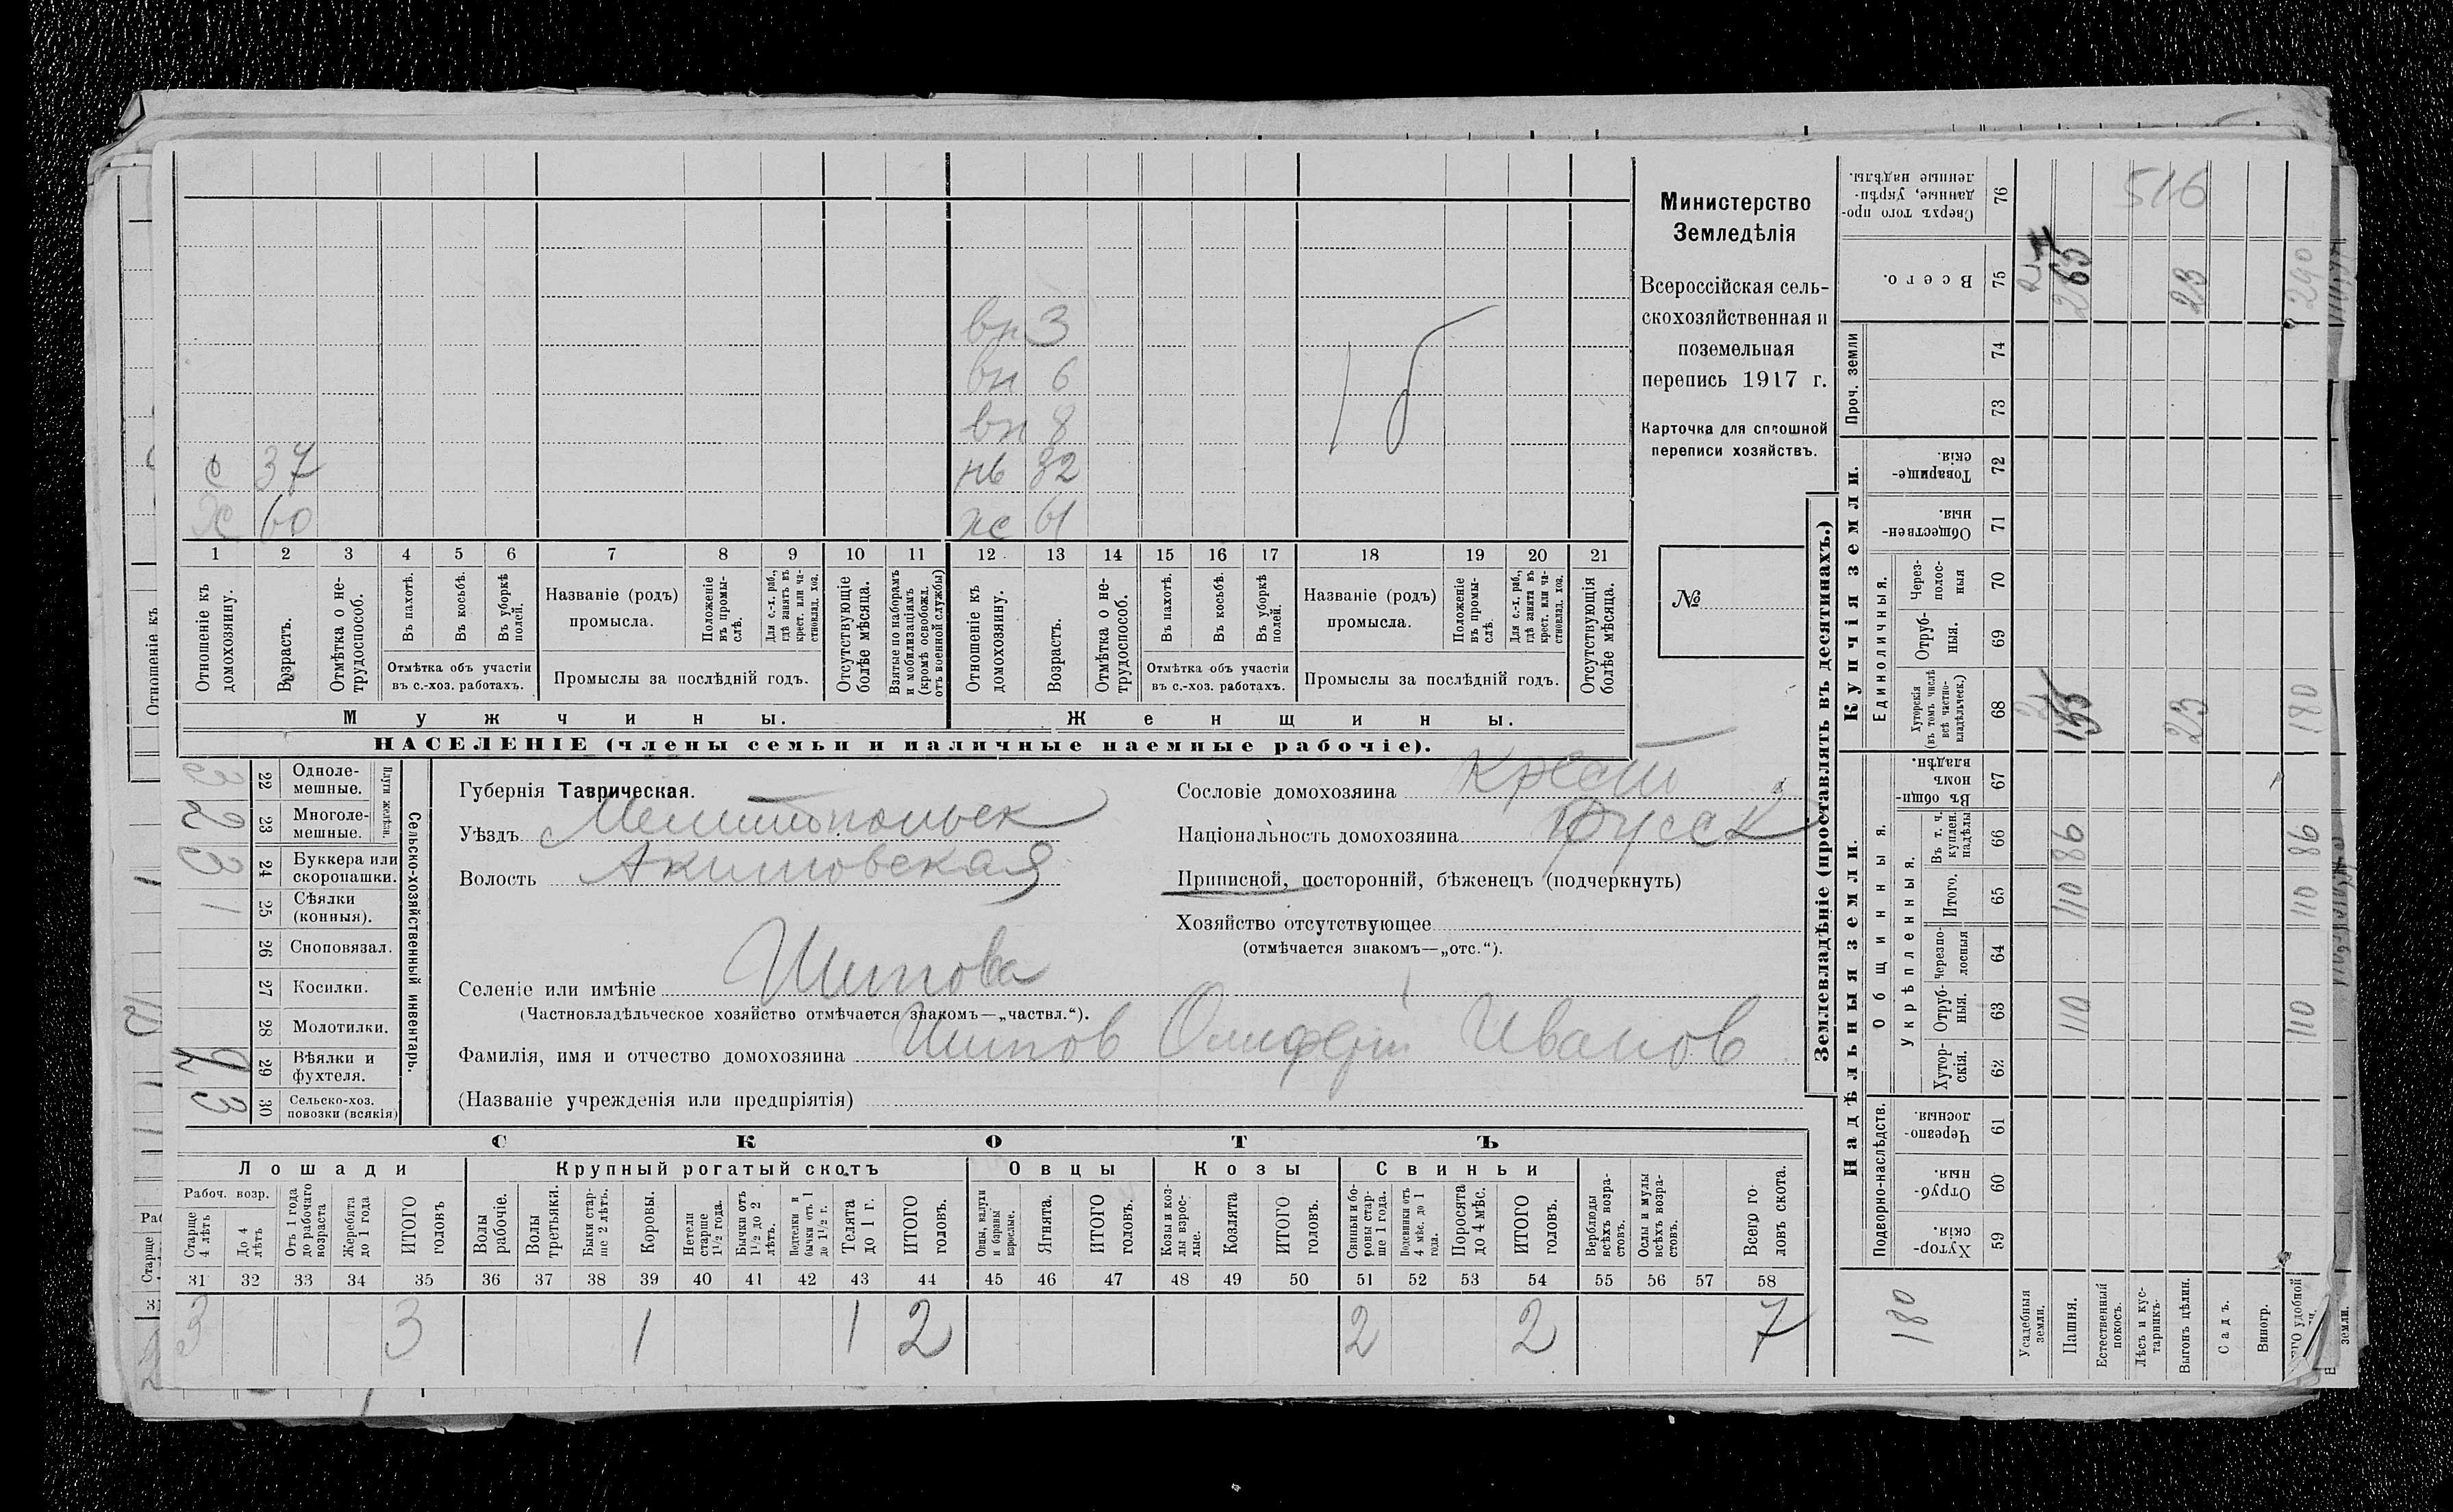 Министерство
Земледѣлія
Всероссійская сель-
скохозяйственная и
поземельная
перепись 1917 г.
Карточка для сплошной
переписи хозяйствъ.
№
вн 3
вн 6
вн 8
с 37 нв 32
Х 60 жс 61
1 2 3 4 5 6 7 8 9 10 11 12 13 14 15 16 17 18 19 20 21
Отношеніе къ домохозяину.
Возрастъ.
Отмѣтка о не-трудоспособ.
Въ пахотѣ.
Въ косьбѣ.
Въ уборкѣ полей.
Отмѣтка объ участіи въ с.-хоз. работахъ.
Названіе (родъ) промысла.
Положеніе въ промы-слѣ.
Для с.-х. раб., гдѣ занятъ въ крест. или ча-стновлад. хоз.
Промыслы за послѣдній годъ.
Отсутствующіе болѣе мѣсяца.
Взятые по наборамъ и мобилизаціямъ (кромѣ освобожд. отъ военной службы)
Отношеніе къ домохозяину.
Возрастъ.
Отмѣтка о не-трудоспособ.
Въ пахотѣ.
Въ косьбѣ.
Въ уборкѣ полей.
Отмѣтка объ участіи въ с.-хоз. работахъ.
Названіе (родъ) промысла.
Положеніе въ промы-слѣ.
Для с.-х. раб., гдѣ занята въ крест. или ча-стновлад. хоз.
Промыслы за послѣдній годъ.
Отсутствующія болѣе мѣсяца.
Мужчины. Женщины.
НАСЕЛЕНІЕ (члены семьи и наличные наемные рабочіе).
Сельско-хозяйственный инвентарь.
Плуги желѣзн.
22 Одноле-мешные.
2 23 Многоле-мешные.
24 Буккера или скоропашки.
1 25 Сѣялки (конныя).
26 Сноповязал.
27 Косилки.
28 Молотилки.
29 Вѣялки и фухтеля.
3 30 Сельско-хоз. повозки (всякія)
Губернія Таврическая.
Уѣздъ Мелитопольск
Волость Акимовская
Селеніе или имѣніе Шипова
(Частновладѣльческое хозяйство отмѣчается знакомъ—„частвл.“).
Фамилія, имя и отчество домохозяина Шипов Олифер Иванов
(Названіе учрежденія или предпріятія)
Сословіе домохозяина крест
Національность домохозяина русск
Приписной, посторонній, бѣженецъ (подчеркнуть)
Хозяйство отсутствующее
(отмѣчается знакомъ—„отс.“).
СКОТЪ
Лошади Крупный рогатый скотъ Овцы Козы Свиньи
Рабоч. возр.
Старше 4 лѣтъ
До 4 лѣтъ
Отъ 1 года до рабочаго возраста
Жеребята до 1 года
ИТОГО головъ
Волы рабочіе.
Волы третьяки.
Быки стар-ше 2 лѣтъ.
Коровы.
Нетели старше 1½ года.
Бычки отъ 1½ до 2 лѣтъ.
Нетелки и бычки отъ 1 до 1½ г.
Телята до 1 г.
ИТОГО головъ.
Овцы, валухи и бараны взрослые.
Ягнята.
ИТОГО головъ.
Козы и коз-лы взрос-лые.
Козлята
ИТОГО головъ.
Свиньи и бо-ровы стар-ше 1 года.
Подсвинки отъ 4 мѣс. до 1 года.
Поросята до 4 мѣс.
ИТОГО головъ.
Верблюды всѣхъ возра-стовъ.
Ослы и мулы всѣхъ возра-стовъ.
Всего го-ловъ скота.
31 32 33 34 35 36 37 38 39 40 41 42 43 44 45 46 47 48 49 50 51 52 53 54 55 56 57 58
3 3 1 1 2 2 2 7
Землевладѣніе (проставлять въ десятинахъ.)
Надѣльныя земли. Купчія земли.
Подворно-наслѣдств.
Общинныя.
Укрѣпленныя.
Единоличныя.
Проч. земли
59 Хутор-скія.
60 Отруб-ныя.
61 Черезпо-лосныя.
62 Хутор-скія.
63 Отруб-ныя.
64 Черезпо-лосныя
65 Итого.
66 Въ т. ч. куплен. надѣлы
67 Въ общи-номъ владѣн.
68 Хуторскія (въ томъ числѣ всѣ частно-владѣльческ.)
69 Отруб-ныя.
70 Через-полос-ныя
71 Обществен-ныя.
72 Товарище-скія.
73
74
75 Всего.
76 Сверхъ того про-данные, укрѣп-ленные надѣлы.
516
180
Усадебныя земли.
Пашня. 110 110 86 155 265
Естественный покосъ.
Лѣсъ и кус-тарникъ.
Выгонъ цѣлин. 23 23
Садъ.
Виногр.
удобной 110 110 86 180 290
земли.